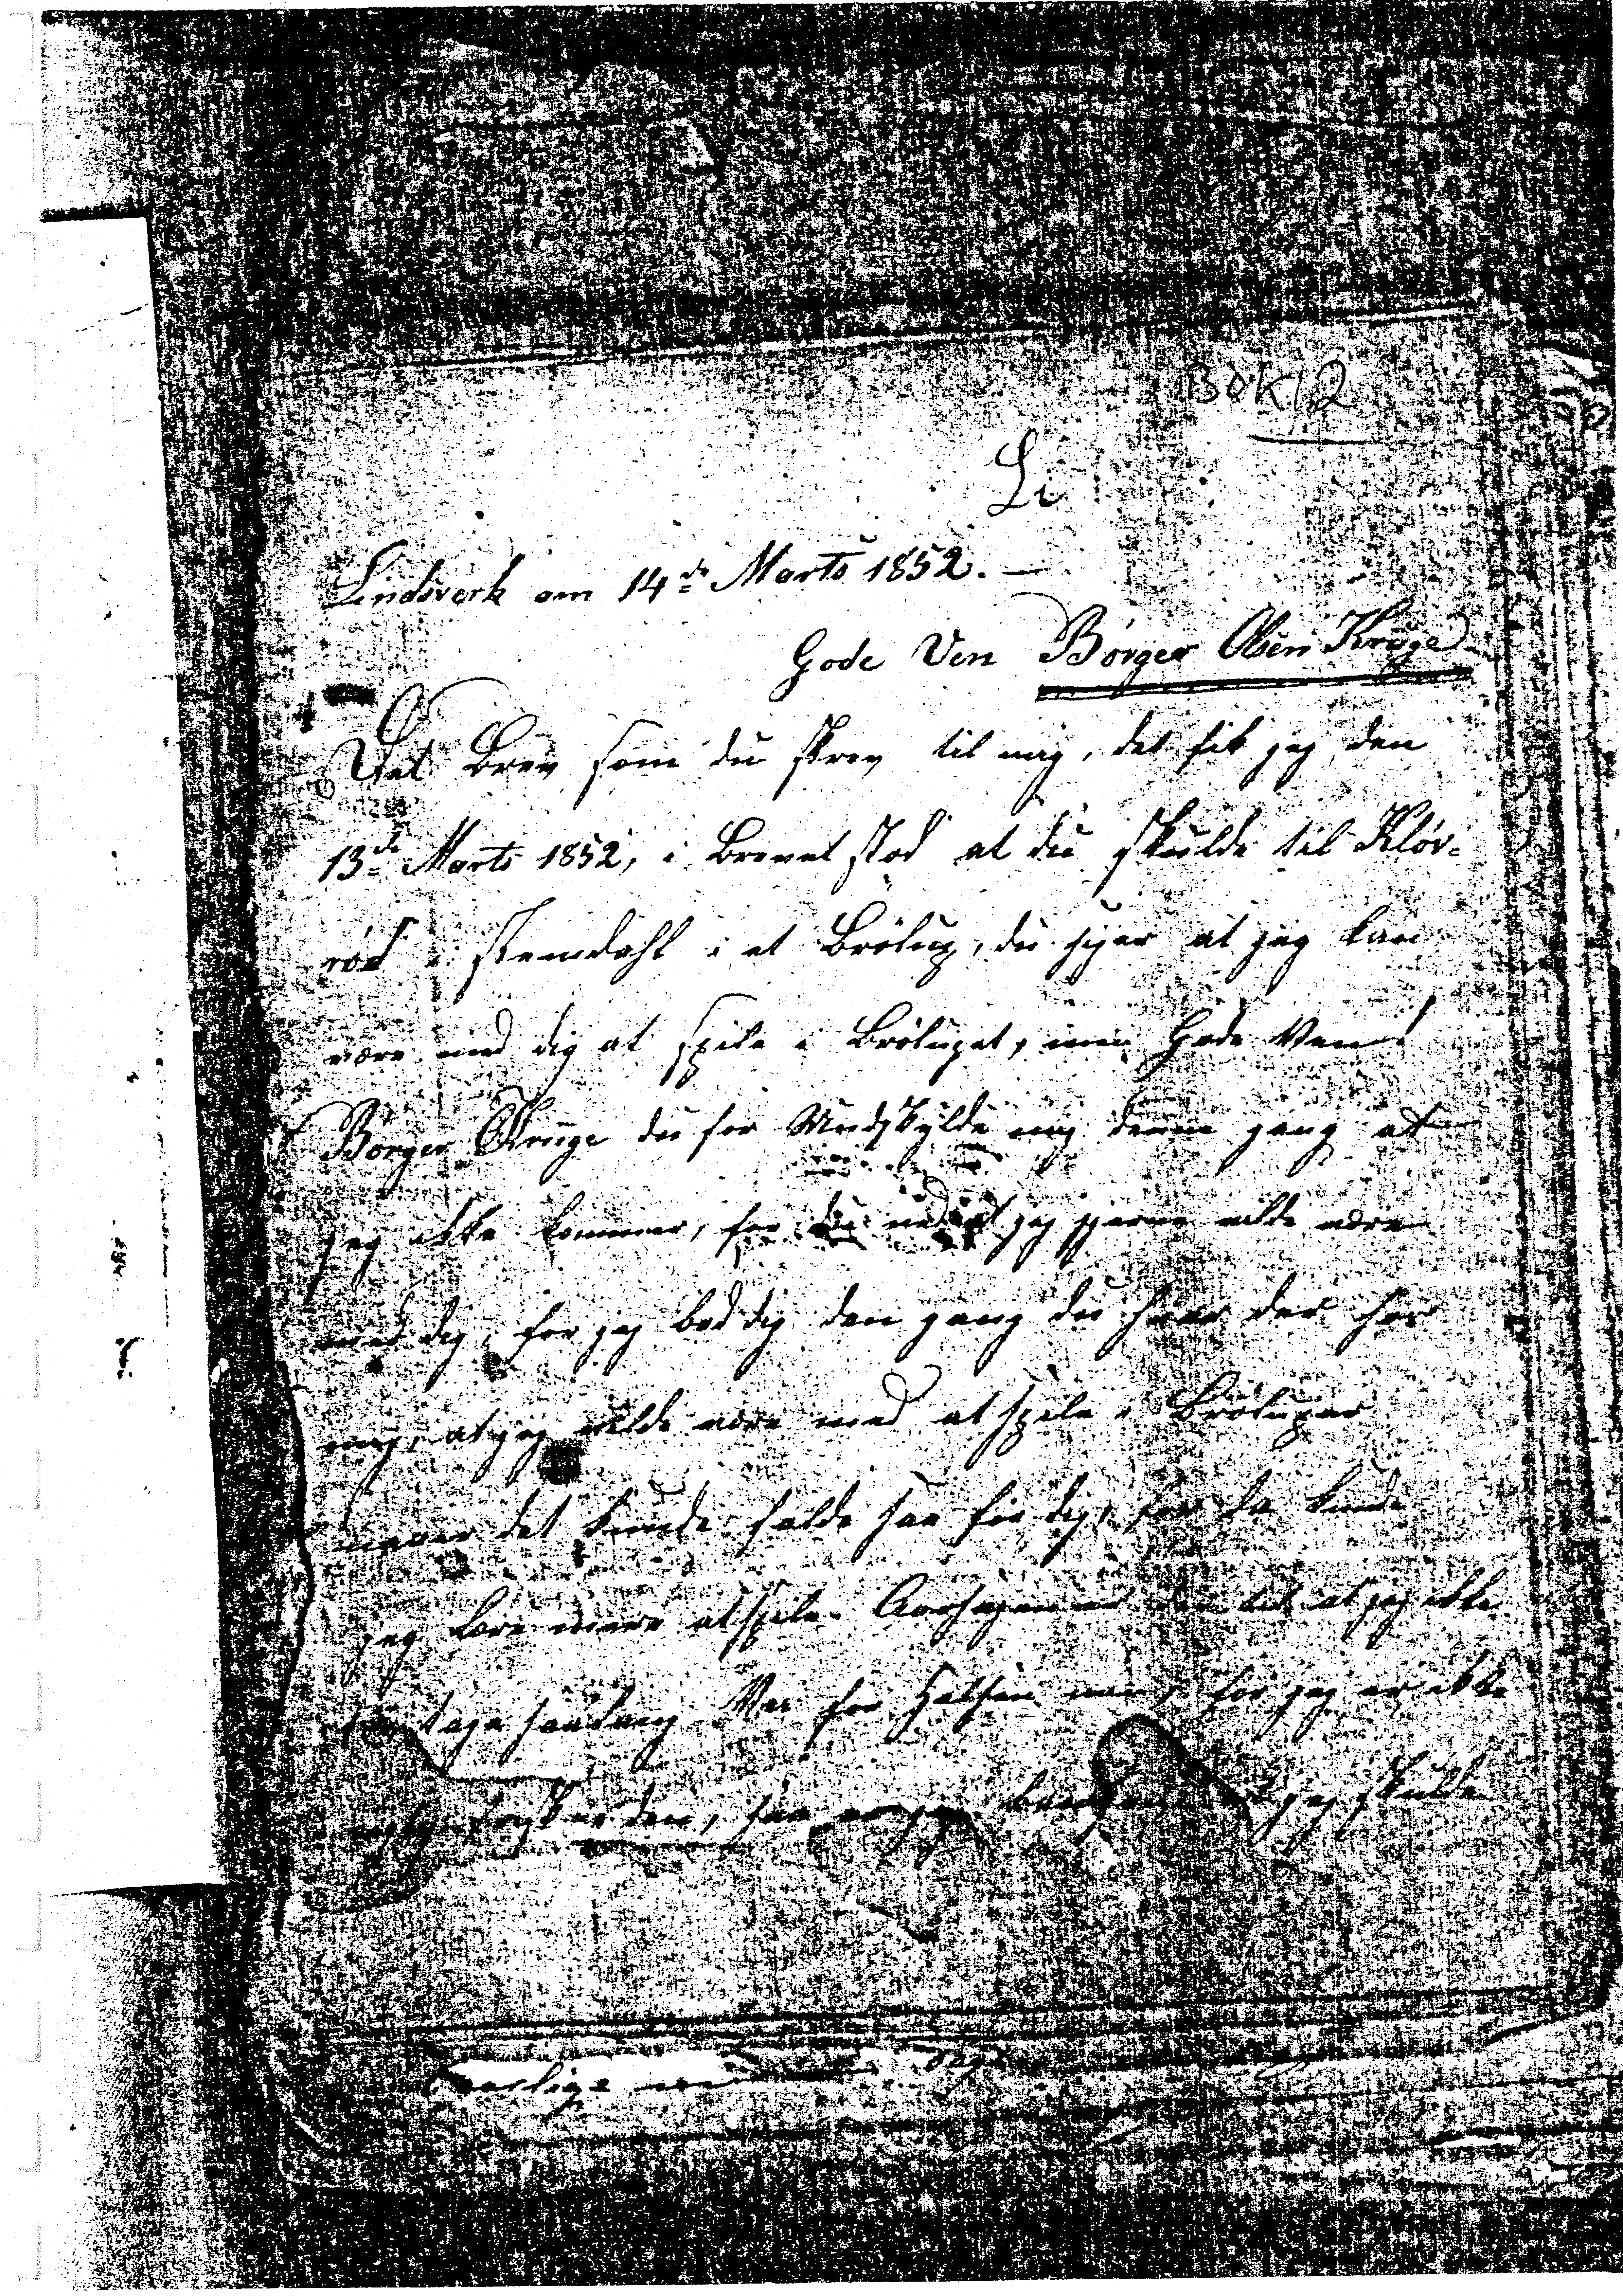 BOK 2
Li
Lindsverk am 14de Marts 1852. —
Gode Ven Børger Olsen Kruge
Det Brev som du skrev til mig, det fik jeg den
13de Marts 1852, i Brevet stod at du skulde til Klöv=
röd i Stemdahl i et Brölup, du siger at jeg kan
være med dig at spile i Brölupet, min Gode Ven!
Børger Kruge du for Undskylde mig denne gang at
jeg ikke kommer, for du ved at jeg gjerne vilde være
med dig, for jeg bad dig den gang du var der hos
mig, at jeg vilde være med at spile i Brölupar
naar det kunde falde saa for dig, for da kunde
jeg lære mere at spile. Aarsagen er den at jeg ikke
tage saadang Vei for Helsen min, for jeg er ikke
frisk den, saa er jeg jeg skulde